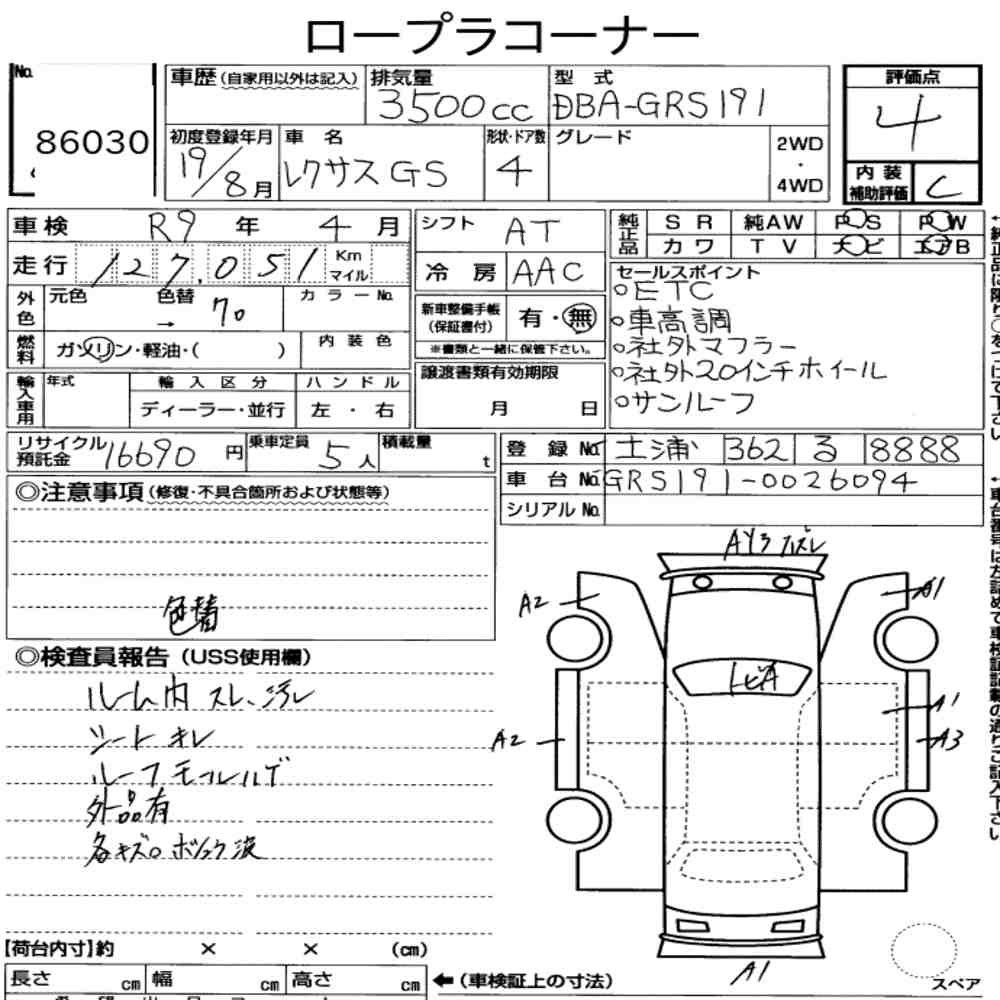 ロープラコーナー
No. 86030
車歴 (自家用以外は記入)
排気量 3500cc
型式 DBA-GRS191
評価点 4
初度登録年月 19/8月
車名 レクサス GS
形状・ドア数 4
グレード
2WD・4WD
内装補助評価 C
車検 R9年 4月
走行 127,051 Km マイル
シフト AT
冷房 AAC
純正品 SR 純AW PS PW
カワ TV ナビ エアB
外色 元色 色替 → 70 カラーNo.
燃料 ガソリン・軽油・( )
内装色
新車整備手帳 (保証書付) 有・無
※書類と一緒に保管下さい。
輸入車用 年式 輸入区分 ハンドル
ディーラー・並行 左・右
譲渡書類有効期限
月 日
セールスポイント
○ETC
○車高調
○社外マフラー
○社外20インチホイール
○サンルーフ
リサイクル預託金 16690円
乗車定員 5人
積載量 t
登録No. 土浦 362 る 8888
車台No. GRS191-0026094
シリアルNo.
◎注意事項 (修復・不具合箇所および状態等)
色替
◎検査員報告 (USS使用欄)
ルーム内 スレ、汚レ
シートキレ
ルーフモールハゲ
外品有
各キズ
AY3 ズレ
A2
A1
トビA
A1
A2
A3
A1
【荷台内寸】約 × × (cm)
長さ cm 幅 cm 高さ cm
←(車検証上の寸法)
スペア
↑純正品に限り○をつけて下さい
↑車台番号は左詰めで車検証記載の通りご記入下さい